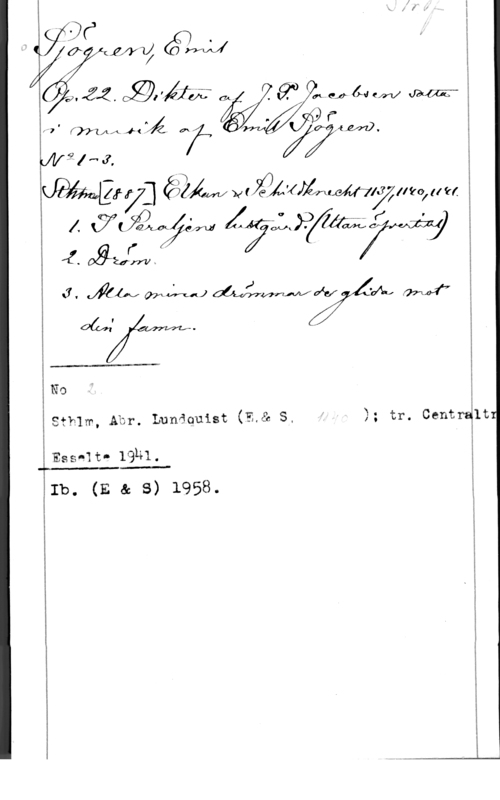 Sjögren, Emil
Op. 22. Dikter af J. P. Jacobsen satta
i musik af Emil Sjögren.
Nº 1-3.
Sthlm [1887] Elkan & Schildknecht 1137, 1140, 1141.
1. I Seraljens lustgård. (Utan öfvertitel)
2. Dröm.
3. Alla mina drömmar de glida mot
din famn.
No 2.
Sthlm, Abr. Lundquist (E.& S. 1140 ); tr. Centraltr
Esselte 1941.
Ib. (E & S) 1958.